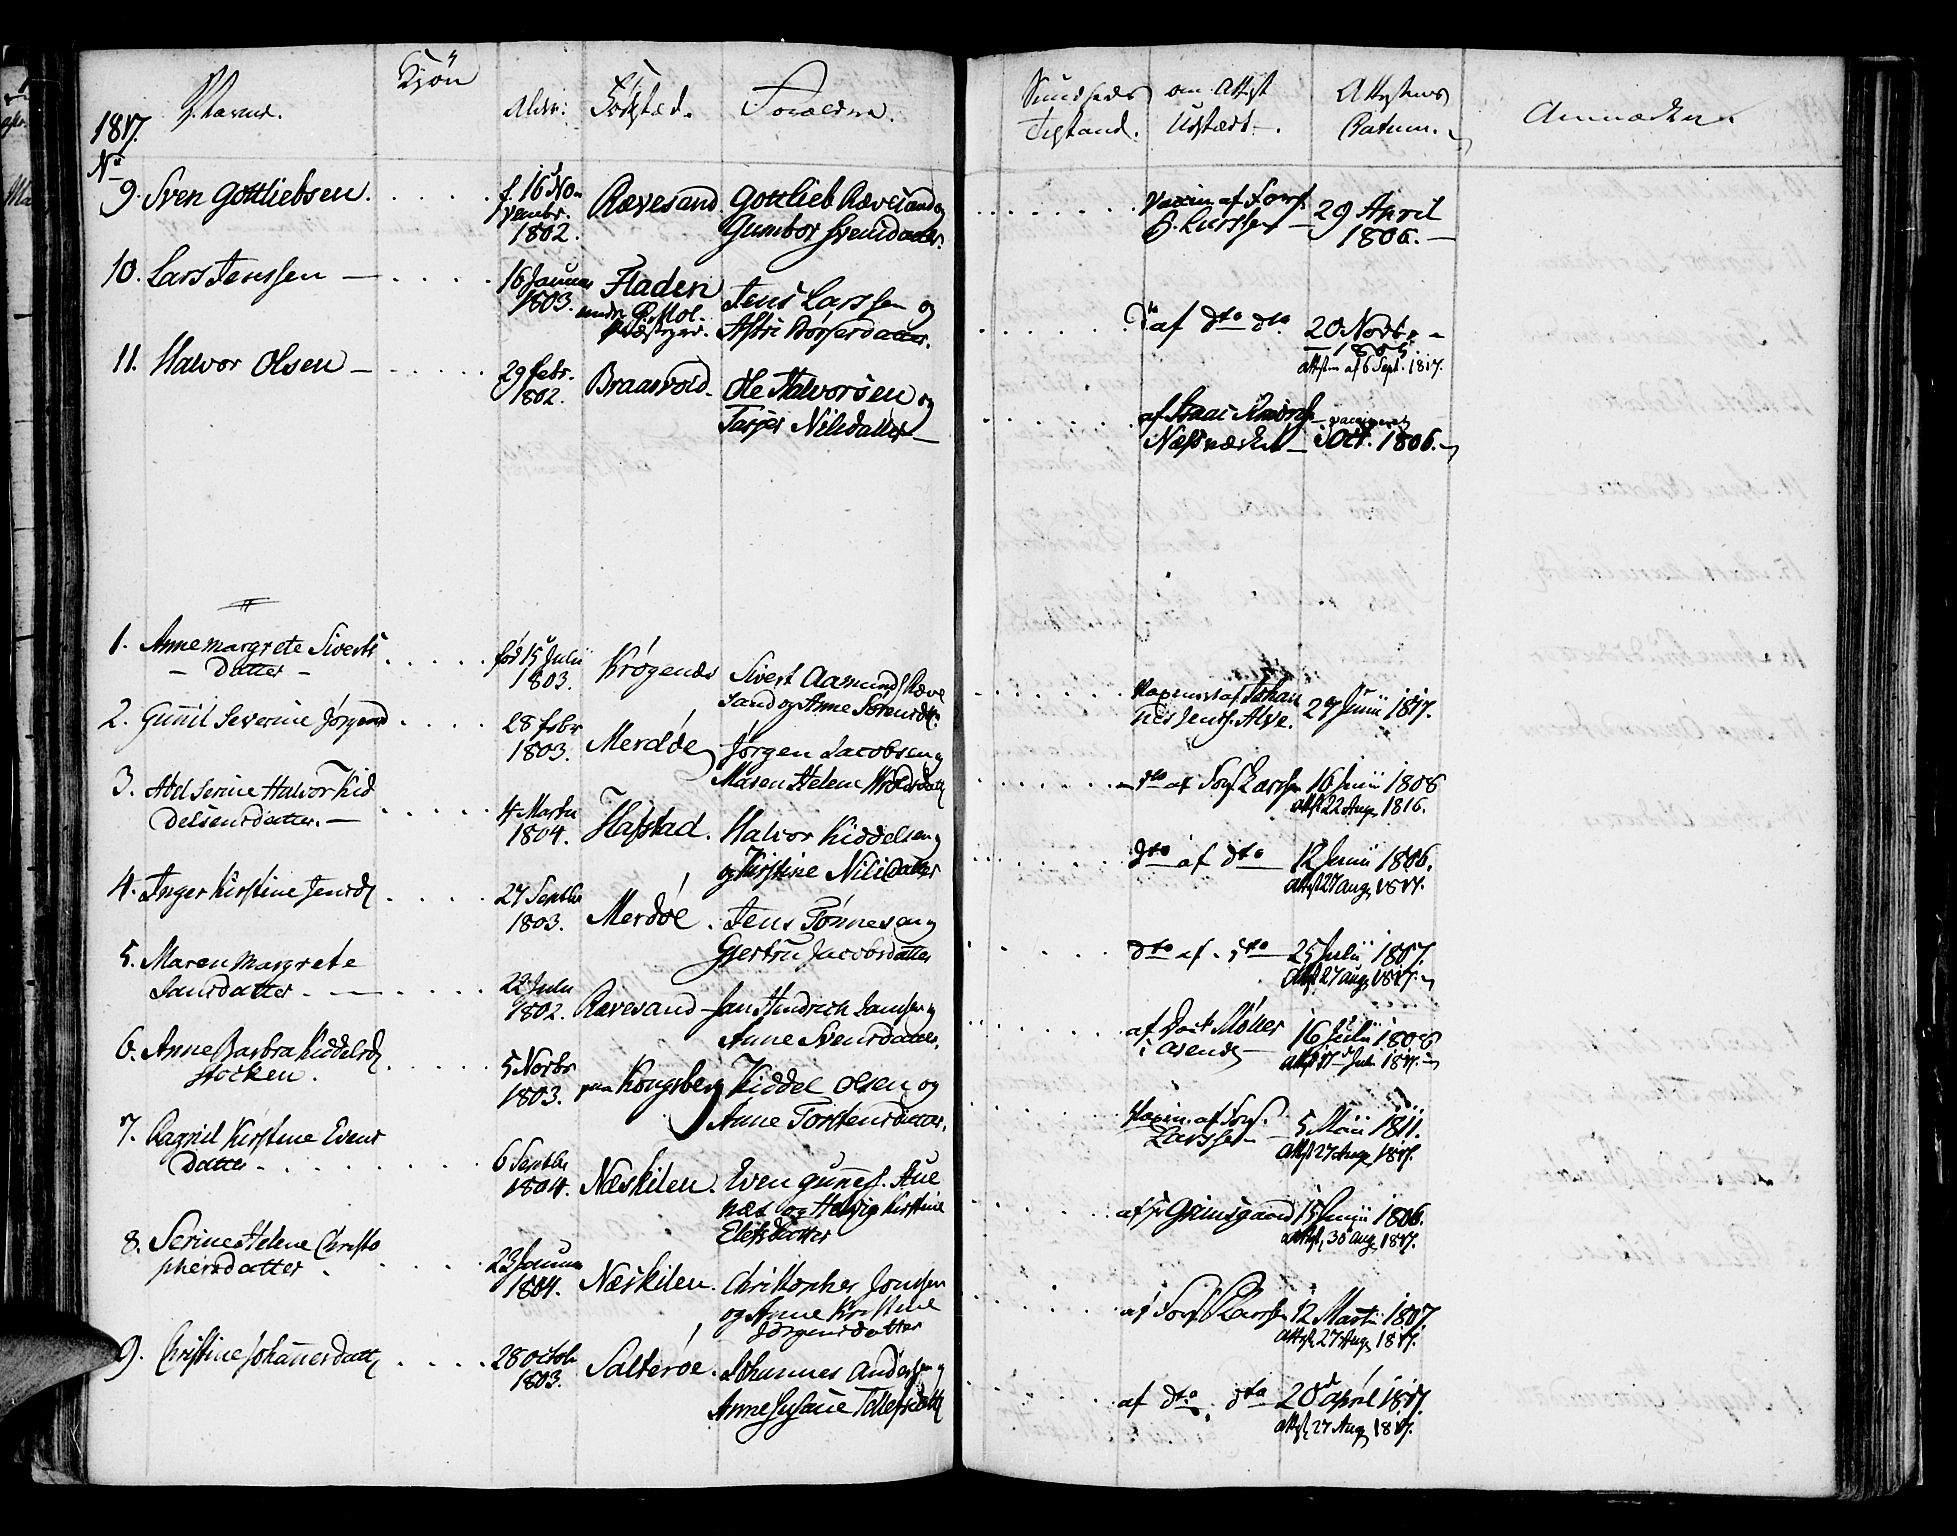 1817.
Kjön
Aldr:
Fødsted.
Forældre.
Sundheds
Tilstand.
om Attest
Udstædt.
Attestens
Datum.
Anmærkn
No
9. Sven Gottliebsen.
f. 16 No-
vembr.
1802.
Rævesand
Gottlieb Rævesand og
Gumbor Svensdatter.
Vaxin. af Forp.
G. Larssen
29 April
1806.
10. Lars Jenssen
16 Januar
1803.
Fladen
under Ø. Mol.
Præstegier.
Jens Larssen og
Astri Børgerdatter.
do af dto dto.
20 Novbr
1805.
Attesten af 6 Sept. 1817.
11. Halvor Olsen
29 febr.
1802.
Braarvold.
Ole Halvorsen og
Tarjer Nilsdatter
af Isaac
Næsværket
vaccineret
i Oct. 1806.
1. Anne margrete Siverts
Datter
fød 15 Julii
1803.
Krøgenæs
Sivert Aamunds. Ræve
sand og Anne Sørensdtr.
Vaxineret af Johan
nes Jens. Alve.
27 Junii 1817.
2. Gunnil Severine Jørgensd
28 febr
1803.
Merdöe
Jørgen Jacobsen og
Maren Helene
dto af Forp. Larssen
16 Junii 1806
Attst 22 Aug 1816.
3. Abel Serine Halvor Kid
delsensdatter.
4 Martii
1804.
Hafstad.
Halvor Kiddelsen
og Kirstine Nilsdatter
dto af dto
12 Junii 1806.
Attst 27 Aug 1817.
4. Inger Kirstine Jensd
27 Septbr
1803.
Merdöe.
Jens Tönnesen og
Gjertru Jacobsdatter
dto af dto
25 Julii 1807.
Attst 27 Aug 1817.
5. Maren Margrete
Jansdatter
22 Julii
1802.
Rævesand
Jan Hindrich Jansen og
Anne Svensdatter.
af Doct Møller
i Arendl
16 Julii 1808
Attst 17 Juli 1817.
6. Anne Barbra Kiddelsd
Stocken.
5 Novbr
1803.
paa Kongsberg
Kiddel Olsen og
Anne Torstensdatter.
Vaxin. af Forp.
Larssen
5 Maii 1811.
Attst 27 Aug 1817.
7. Ragnil Kirstine Evens
Datter
6 Septbr
1804.
Næskilen.
Even Gunness. Aue
næs og Helvig Kirstine
Elefsdatter
af Hr Grimsgaard
15 Junii 1806.
Attst, 30 Aug 1817.
8. Serine Helene Christo
phersdatter
23 Januar
1804.
Næskilen.
Christopher Jonssen
og Anne Kristine
Jørgensdatter
af Forp Larssen
12 Martii 1807.
Attst 27 Aug 1817.
9. Christine Johannesdatt
28 Octobr
1803.
Salteröe.
Johannes Anderssen
Anne Susane Tellefsdatt
af dto. dto
20d April 1817.
Attst 27 Aug 1817.